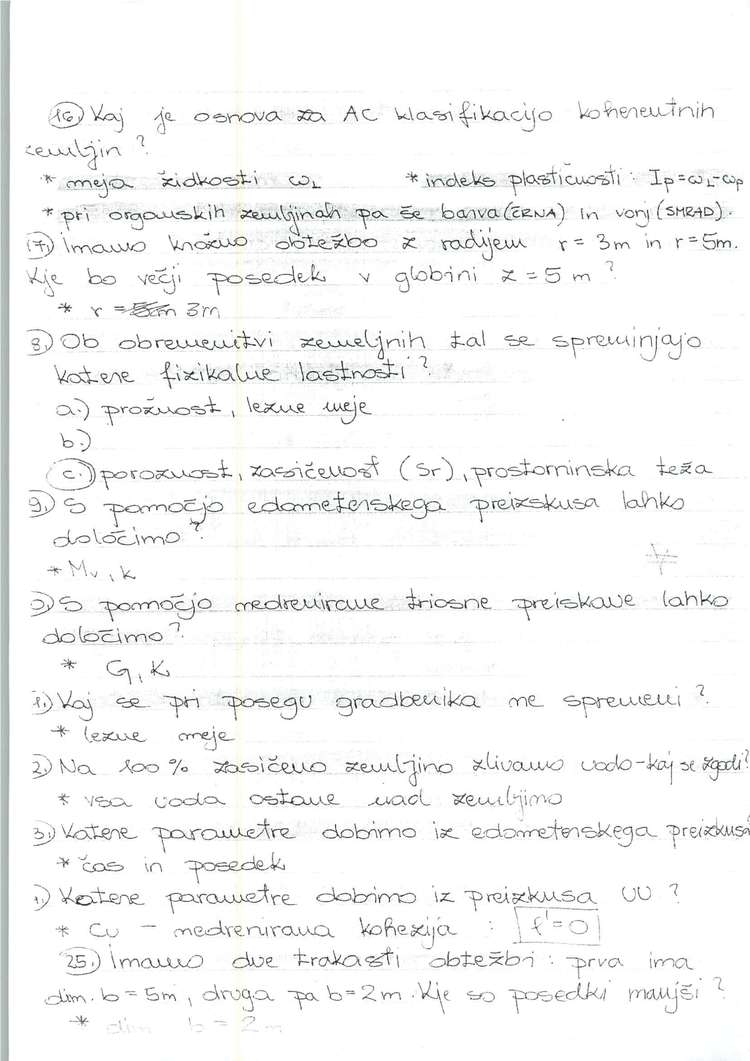 16.) Kaj je osnova za AC klasifikacijo koherentnih
zemljin?
* meja židkosti ωL   * indeks plastičnosti: Ip=ωL-ωp
* pri organskih zemljinah pa še barva (ČRNA) in vonj (SMRAD).
17.) Imamo krožno obtežbo z radijem r = 3m in r=5m.
Kje bo večji posedek v globini z = 5 m?
* r = 3m
8.) Ob obremenitvi zemeljnih tal se spreminjajo
katere fizikalne lastnosti?
a.) prožnost, lezne meje
b.)
c.) poroznost, zasičenost (Sr), prostorninska teža
9.) S pomočjo edometerskega preizskusa lahko
določimo?
* Mv, k
0.) S pomočjo nedrenirane triosne preiskave lahko
določimo?
* G, K
1.) Kaj se pri posegu gradbenika ne spremeni?
* lezne meje
2.) Na 100 % zasičeno zemljino zlivamo vodo - kaj se zgodi?
* vsa voda ostane nad zemljino
3.) Katere parametre dobimo iz edometerskega preizkusa
* čas in posedek
1.) Katere parametre dobimo iz preizkusa UU?
* Cu - nedrenirana kohezija : f'=0
25.) Imamo dve trakasti obtežbi: prva ima
dim. b = 5m, druga pa b=2m. Kje so posedki manjši?
* dim b = 2m